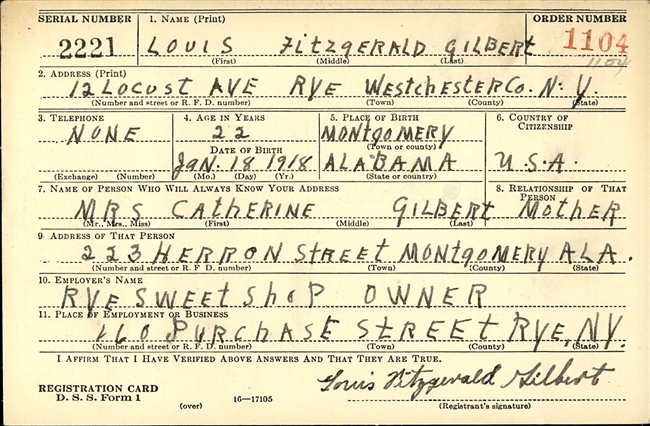 SERIAL NUMBER 1. NAME (Print) ORDER NUMBER
2221 LOUIS FITZGERALD GILBERT 1104
(First) (Middle) (Last) 1104
2. ADDRESS (Print)
12 LOCUST AVE RYE WESTCHESTER CO. N.Y.
(Number and street or R. F. D. number) (Town) (County) (State)
3. TELEPHONE 4. AGE IN YEARS 5. PLACE OF BIRTH 6. COUNTRY OF CITIZENSHIP
NONE 22 MONTGOMERY
(Town or county)
DATE OF BIRTH
JAN. 18 1918 ALABAMA U.S.A.
(Exchange) (Number) (Mo.) (Day) (Yr.) (State or country)
7. NAME OF PERSON WHO WILL ALWAYS KNOW YOUR ADDRESS 8. RELATIONSHIP OF THAT PERSON
MRS CATHERINE GILBERT MOTHER
(Mr., Mrs., Miss) (First) (Middle) (Last)
9 ADDRESS OF THAT PERSON
223 HERRON STREET MONTGOMERY ALA.
(Number and street or R. F. D. number) (Town) (County) (State)
10. EMPLOYER'S NAME
RYE SWEET SHOP OWNER
11. PLACE OF EMPLOYMENT OR BUSINESS
160 PURCHASE STREET RYE, NY.
(Number and street or R. F. D. number) (Town) (County) (State)
I AFFIRM THAT I HAVE VERIFIED ABOVE ANSWERS AND THAT THEY ARE TRUE.
Louis Fitzgerald Gilbert
REGISTRATION CARD
D. S. S. Form 1 (over) 16—17105 (Registrant's signature)